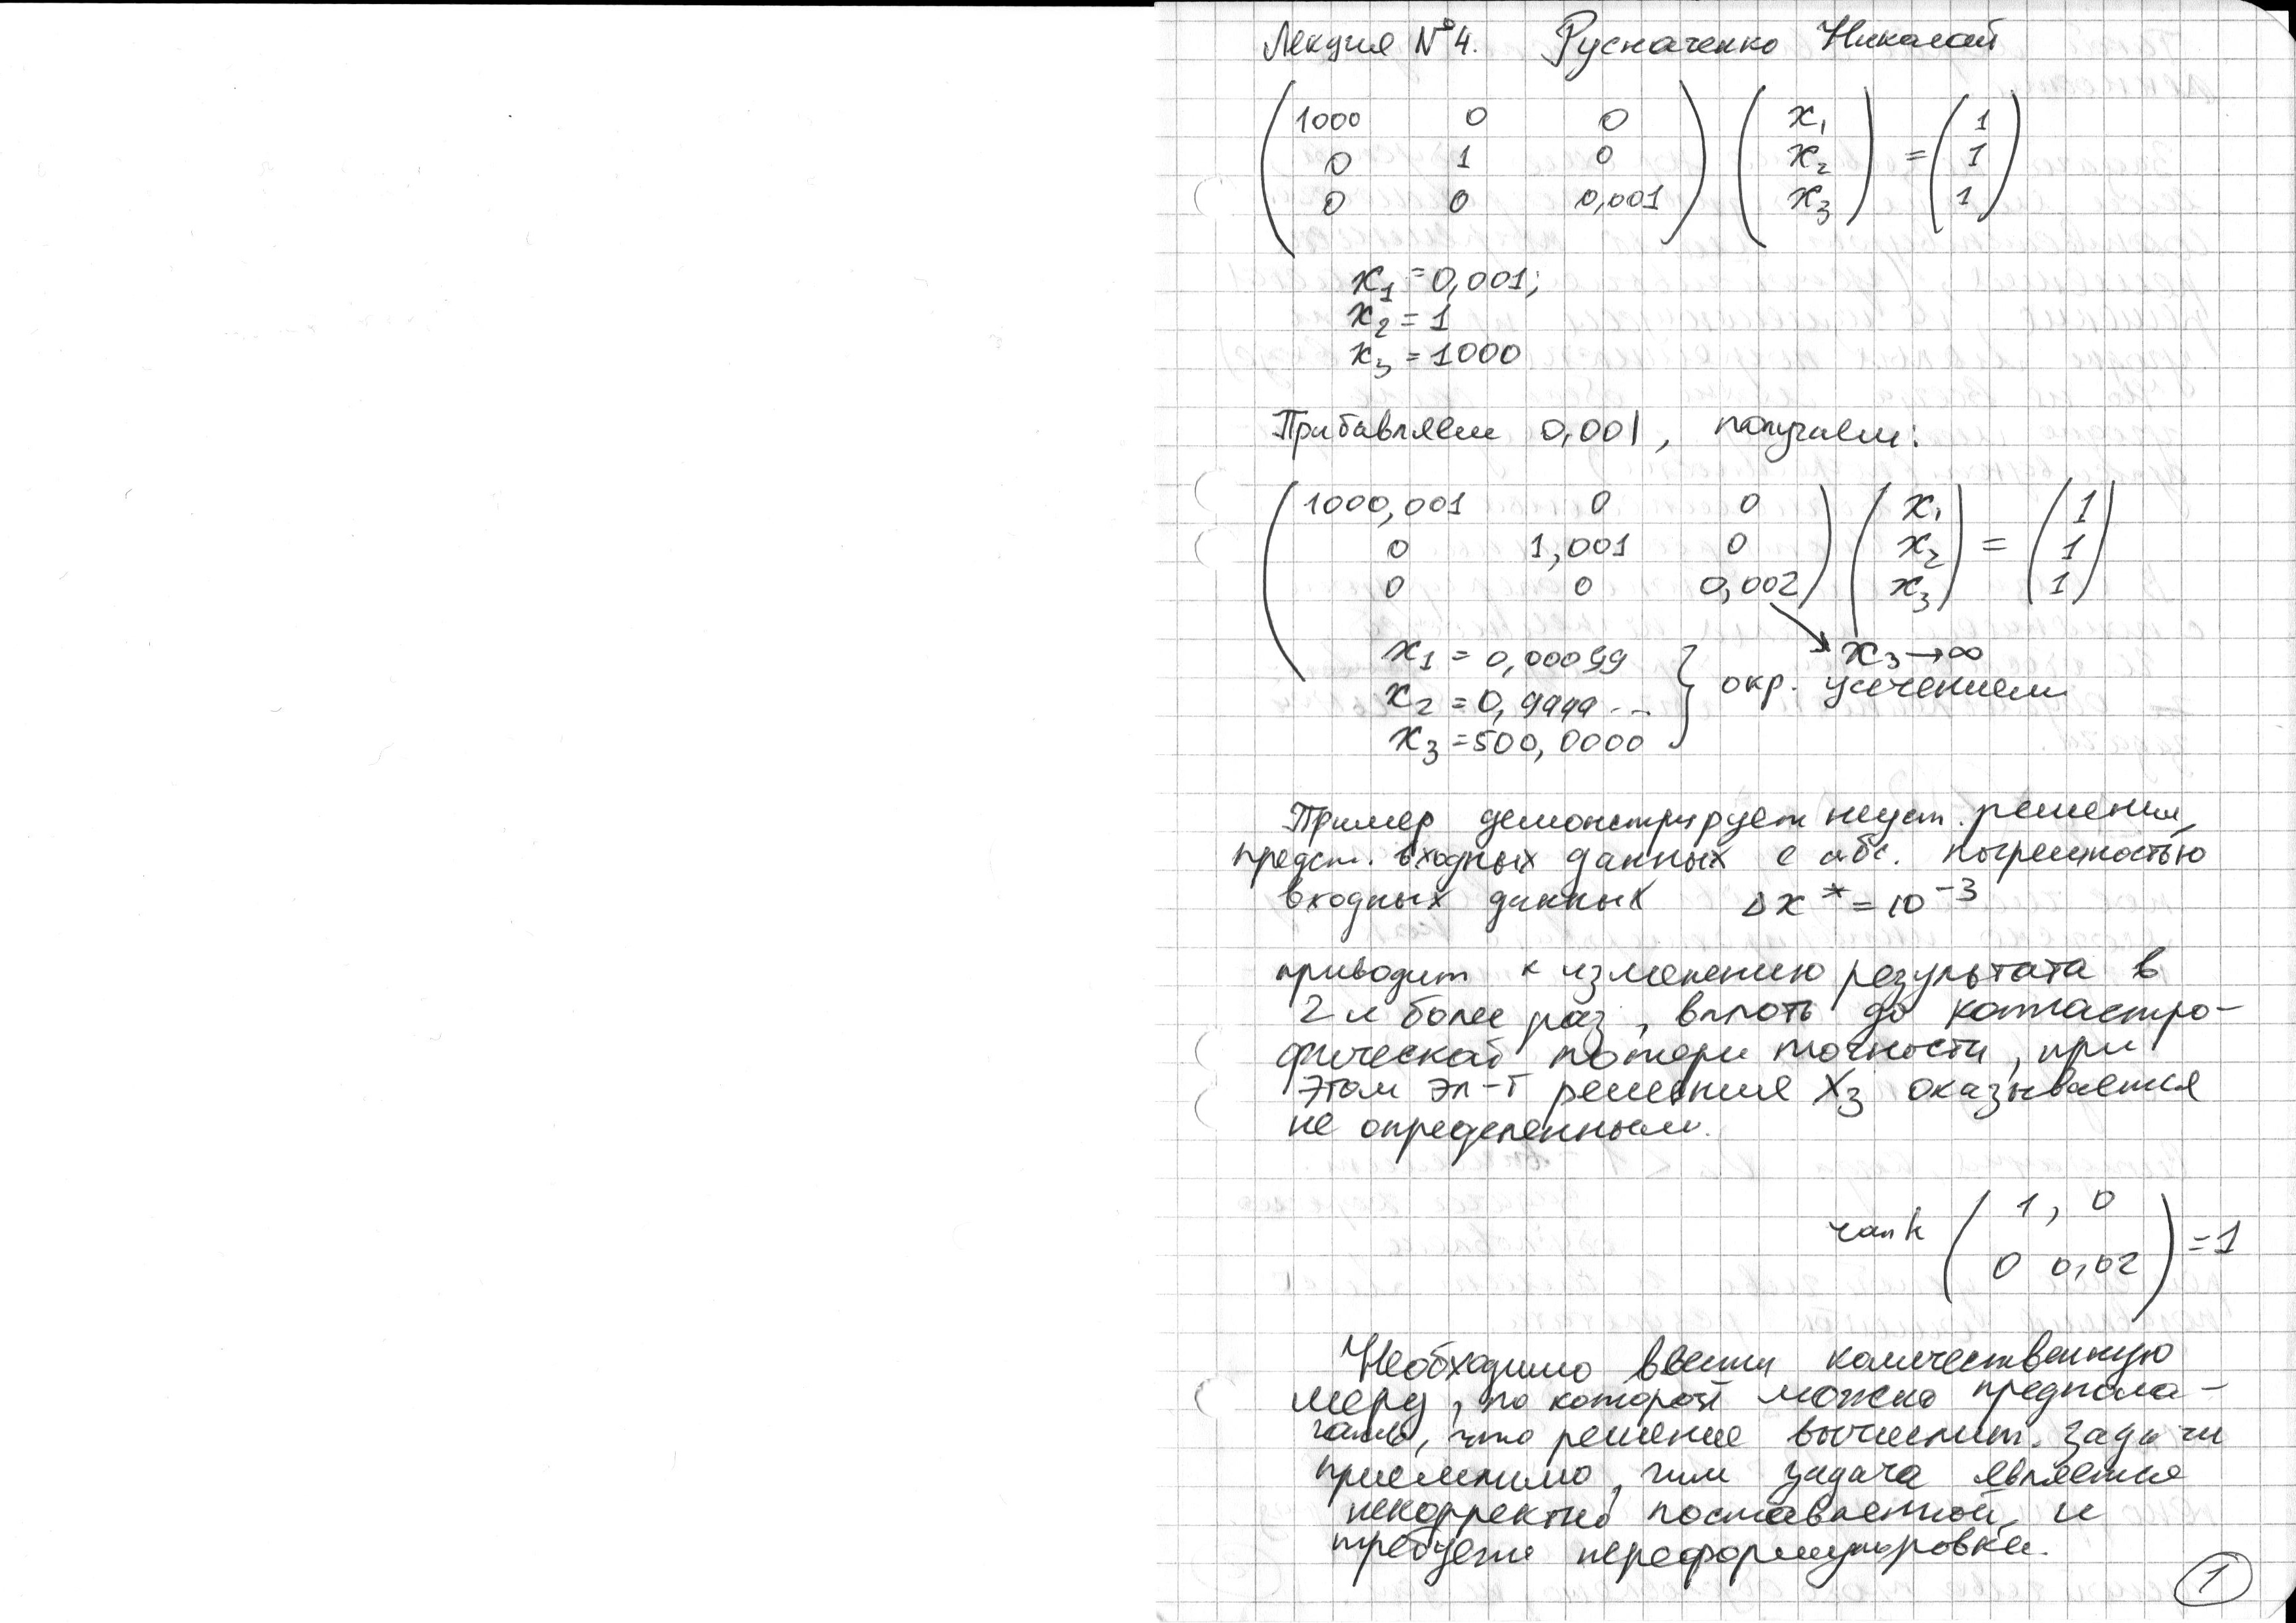 Лекция №4. Русначенко Николай
( 1000 0 0 ) ( x₁ ) ( 1 )
( 0 1 0 ) ( x₂ ) = ( 1 )
( 0 0 0,001 ) ( x₃ ) ( 1 )
x₁ = 0,001;
x₂ = 1
x₃ = 1000
Прибавляем 0,001, получаем:
( 1000,001 0 0 ) ( x₁ ) ( 1 )
( 0 1,001 0 ) ( x₂ ) = ( 1 )
( 0 0 0,002 ) ( x₃ ) ( 1 )
x₃ → ∞
x₁ = 0,00099
x₂ = 0,9999... } окр. усечением
x₃ = 500,0000
Пример демонстрирует неуст. решения,
предст. входных данных с абс. погрешностью
входных данных Δx* = 10⁻³
приводит к изменению результата в
2 и более раз, вплоть до катастро-
фической потери точности, при
этом эл-т решения X₃ оказывается
не определенным.
rank ( 1, 0 ) = 1
( 0 0,02 )
Необходимо ввести количественную
меру, по которой можно предпола-
гать, что решение вычислит. задачи
приемлимо, или задача является
некорректно поставленной, и
требует переформулировки.
1